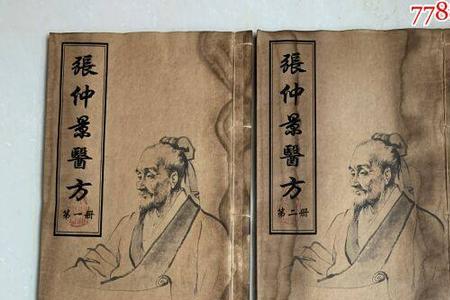 778
張仲景醫方
第一册
張仲景醫方
第二册